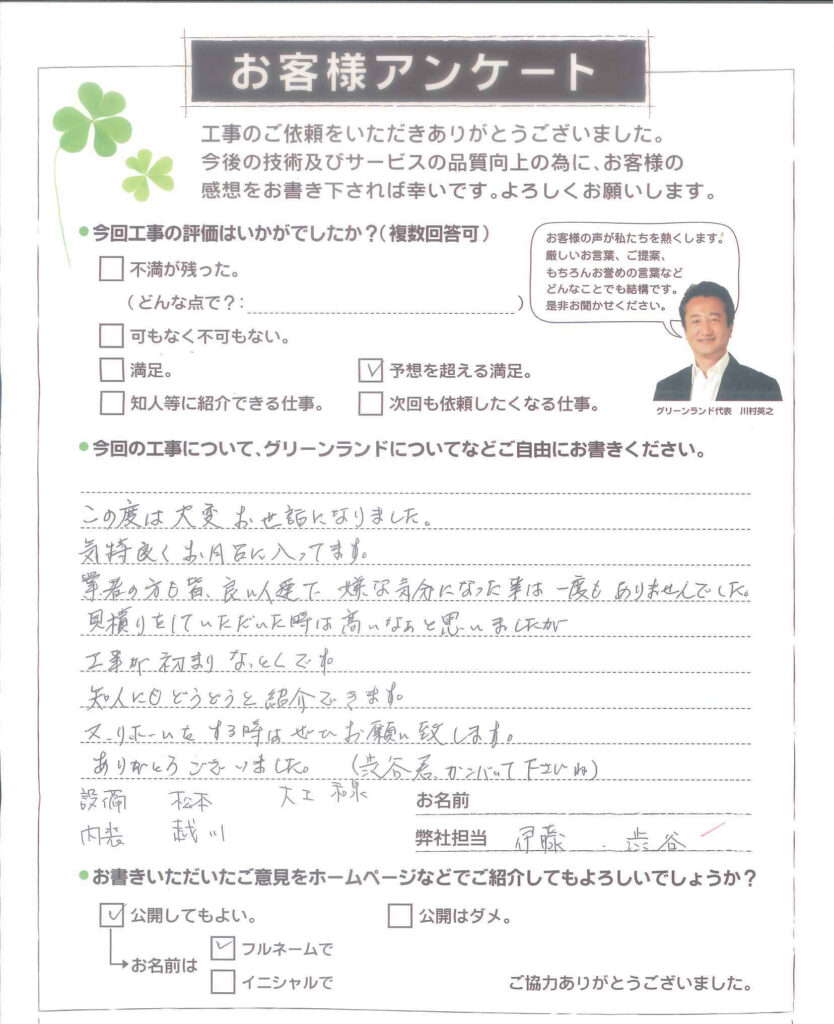 お客様アンケート
工事のご依頼をいただきありがとうございました。
今後の技術及びサービスの品質向上の為に、お客様の
感想をお書き下されば幸いです。よろしくお願いします。
今回工事の評価はいかがでしたか?(複数回答可)
お客様の声が私たちを熱くします。
厳しいお言葉、ご提案、
もちろんお誉めの言葉など
どんなことでも結構です。
是非お聞かせください。
不満が残った。
(どんな点で?: )
可もなく不可もない。
満足。
予想を超える満足。
知人等に紹介できる仕事。
次回も依頼したくなる仕事。
グリーンランド代表 川村英之
今回の工事について、グリーンランドについてなどご自由にお書きください。
この度は大変お世話になりました。
気持良くお風呂に入ってます。
業者の方も皆、良い人達で 嫌な気分になった事は一度もありませんでした。
見積りをしていただいた時は高いなぁと思いましたが
工事が初まりなっとくです。
知人にもどうどうと紹介できます。
又、リホームをする時はぜひお願い致します。
ありがとうございました。 (渋谷君、ガンバって下さいね)
設備 松本 大工
内装 越川
お名前
弊社担当 伊藤 . 渋谷
お書きいただいたご意見をホームページなどでご紹介してもよろしいでしょうか?
公開してもよい。
公開はダメ。
お名前は
フルネームで
イニシャルで
ご協力ありがとうございました。